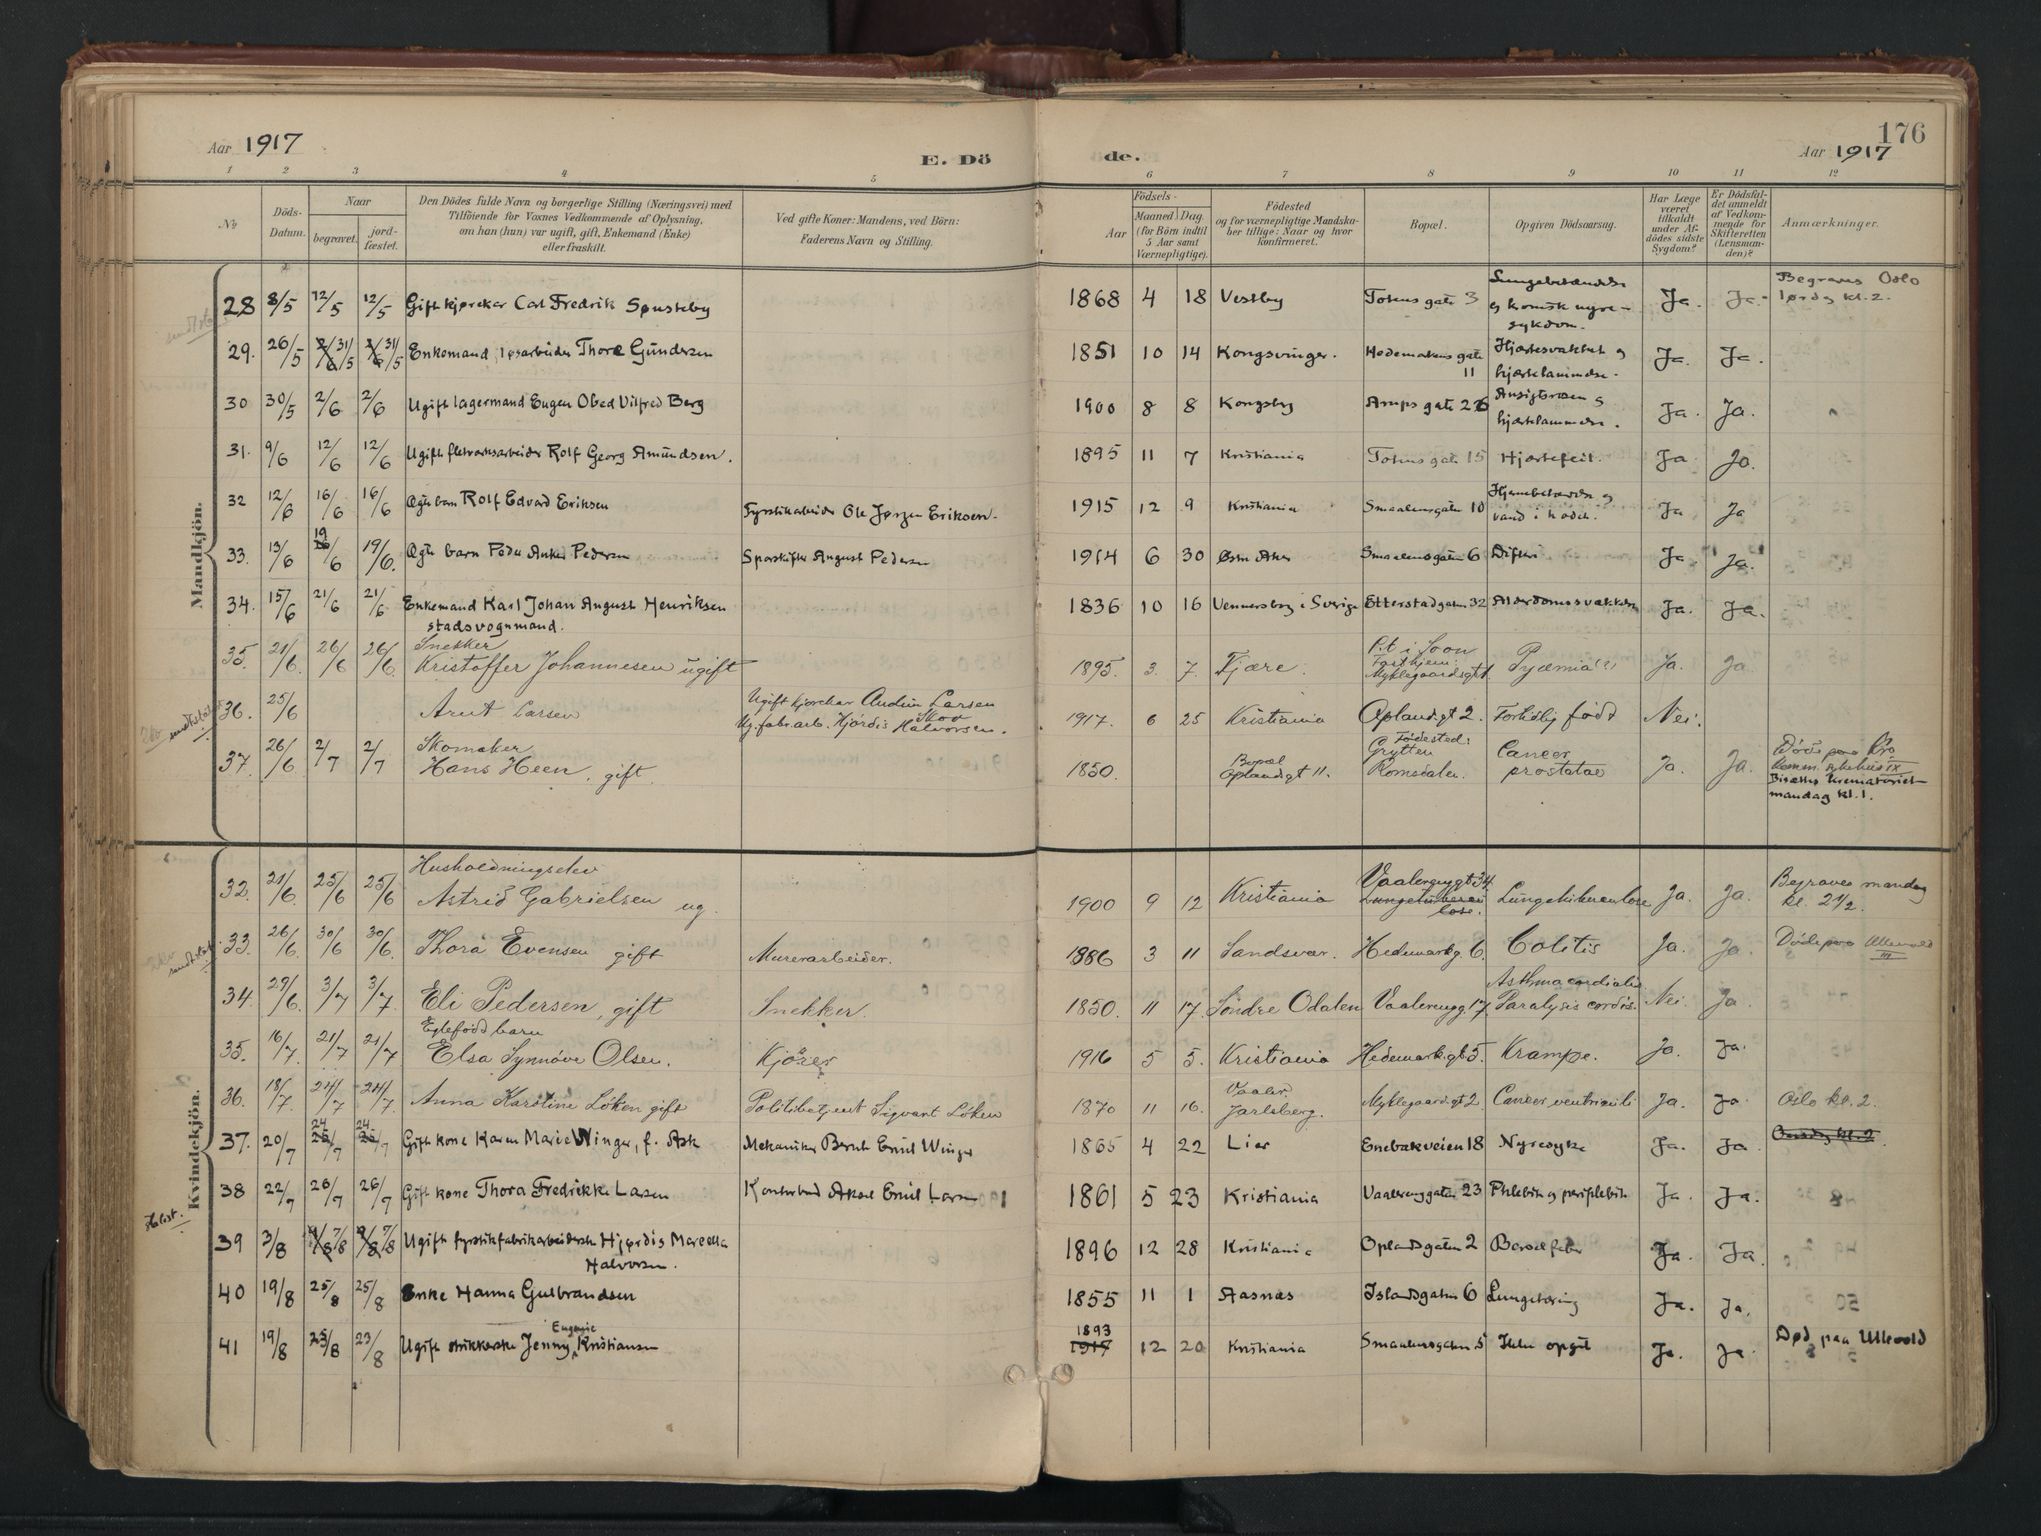 Aar 1917
E. Dö
de.
176
Aar 1917
1 2 3 4 5 6 7 8 9 10 11 12
No
Döds-Datum.
Naar
begravet.
jord-fæstet.
Den Dödes fulde Navn og borgerlige Stilling (Næringsvei) med
Tilföiende for Voxnes Vedkommende af Oplysning,
om han (hun) var ugift, gift, Enkemand (Enke)
eller fraskilt.
Ved gifte Koner: Mandens, ved Börn:
Faderens Navn og Stilling.
Födsels-
Aar
Maaned Dag.
(for Börn indtil
5 Aar samt
Værnepligtige).
Födested
og for værnepligtige Mandska-
ber tillige: Naar og hvor
konfirmeret.
Bopæl.
Opgiven Dödsaarsag.
Har Læge
været
tilkaldt
under Af-
dödes sidste
Sygdom?
Er Dödsfal-
det anmeldt
af Vedkom-
mende for
Skifteretten
(Lensman-
den)?
Anmærkninger.
Mandkjön.
28 8/5 12/5 12/5 Gift kjørekar Carl Fredrik Sønsteby 1868 4 18 Vestby Totens gate 3 Lungebetændelse og kronisk nyre-sykdom. Ja. Ja. Begraves Oslo lørdag kl. 2.
29. 26/5 31/5 31/5 Enkemand, løsarbeider Thore Gundersen 1851 10 14 Kongsvinger. Hedemarkens gate 11 Hjertesvakhet og hjertelammelse. Ja. Ja.
30 30/5 2/6 2/6 Ugift lagermand Eugen Obed Vilfred Berg 1900 8 8 Kongsby Arups gate Ansigtsrosen og hjertelammelse. Ja. Ja.
31. 9/6 12/6 12/6 Ugift Rolf Georg Amundsen. 1895 11 7 Kristiania Totens gate 15 Hjertefeil. Ja. Ja.
32 12/6 16/6 16/6 Egte barn Rolf Edvard Eriksen Fyrstikarbeider Ole Jørgen Eriksen. 1915 12 9 Kristiania Smaalensgaten 10 Hjernebetændelse og vand i hodet. Ja Ja
33. 13/6 19/6 19/6. Egte barn Peder Anker Pedersen Sporskifter August Pedersen 1914 6 30 Østre Aker Smaalensgaten 6 Difteri Ja Ja.
34. 15/6 21/6 21/6 Enkemand Karl Johan August Henriksen
stadsvognmand. 1836 10 16 Vennersborg i Sverige Etterstadgaten 32 Alderdomssvækkelse Ja. Ja.
35. 21/6. 26/6 26/6. Snekker
Kristoffer Johannesen ugift 1895. 3. 7. Fjære. P.t. i Soon
Myklegaardsgt 1 Pyæmia Ja. Ja.
36. 25/6 Arnt Larsen Ugift kjørekar Audun Larsen Skov
Ug. fabr.arb. Hjördis Halvorsen. 1917. 6 25 Kristiania Oplandsgt 2. Fortidlig född Nei.
37. 26/6. 2/7 2/7 Skomaker
Hans Heen, gift. 1850. Bopæl
Oplandsgt 11. Födested:
Grytten
Romsdalen. Cancer
prostatae Ja. Ja. Döde paa Kra
komm. sykehus IX
Bisættes krematoriet
mandag kl. 1.
Kvindekjön.
32. 21/6. 25/6 25/6 Husholdningselev
Astrid Gabrielsen ug. 1900 9 12 Kristiania Vaalerenggt 34. Lungetuberkulose Ja. Ja. Begraves mandag
kl. 2 1/2.
33. 26/6. 30/6 30/6. Thora Evensen gift Murerarbeider. 1886 3 11 Sandsvær. Hedemarkg. 6. Colitis Ja. Ja. Döde paa Ullevold
III
34. 29/6. 3/7 3/7. Eli Pedersen, gift Snekker. 1850. 11 17. Söndre Odalen Vaalerengg. 17 Asthma cordialis
Paralysis cordis. Nei. Ja
35. 16/7. 21/7 21/7 Egtefödd barn
Elsa Synnöve Olsen. Kjörer 1916 5 5. Kristiania Hedemarksgt 5. Krampe. Ja. Ja.
36. 18/7. 24/7 24/7. Anna Karstine Löken gift Politibetjent Sigvart Löken 1870 11 16. Vaaler,
Jarlsberg. Myklegaardsgt 2 Cancer ventriculi Ja. Ja. Oslo kl. 2.
37. 20/7 24/7 24/7 Gift kone Karen Marie Winger, f. Ask Mekaniker Bernh Emil Winger 1865 4 22 Lier Enebakveien 18 Nyresyke Ja. Ja. Onsdag kl. 2.
38 22/7 26/7 26/7 Gift kone Thora Fredrikke Larsen Kontorbud Aksel Emil Larsen 1861 5 23 Kristiania Vaalerenggaten 23 Phlebitis og periphlebitis Ja. Ja.
39 3/8 7/8 7/8 Ugift fyrstikfabrikarbeiderske Hjørdis Marcella
Halvorsen. 1896 12 28 Kristiania Oplandsgaten 2 Barselfeber Ja. Ja.
40 19/8 25/8 25/8 Enke Hanna Gulbrandsen 1855 11 1 Aasnæs Islandsgaten 6 Lungetæring Ja. Ja.
41 19/8 23/8 23/8 Ugift strikkerske Jenny Eugenie Kristiansen 1893 12 20 Kristiania Smaalensgaten 5 Ikke opgit Ja. Ja Død paa Ullevold